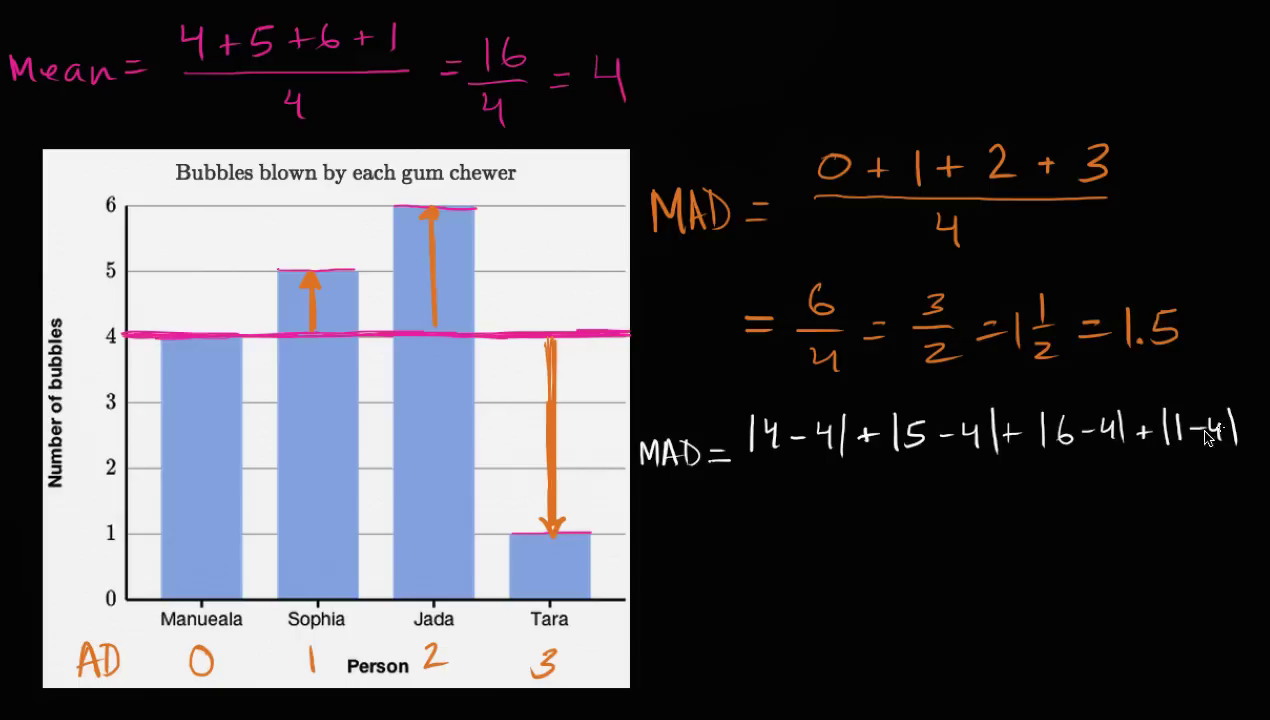 Mean = 4 + 5 + 6 + 1 / 4 = 16/4 = 4
Bubbles blown by each gum chewer
6
5
4
3
2
1
0
Number of bubbles
Manueala Sophia Jada Tara
Person
AD 0 1 2 3
MAD = 0 + 1 + 2 + 3 / 4
= 6/4 = 3/2 = 1 1/2 = 1.5
MAD = |4 - 4| + |5 - 4| + |6 - 4| + |1 - 4|